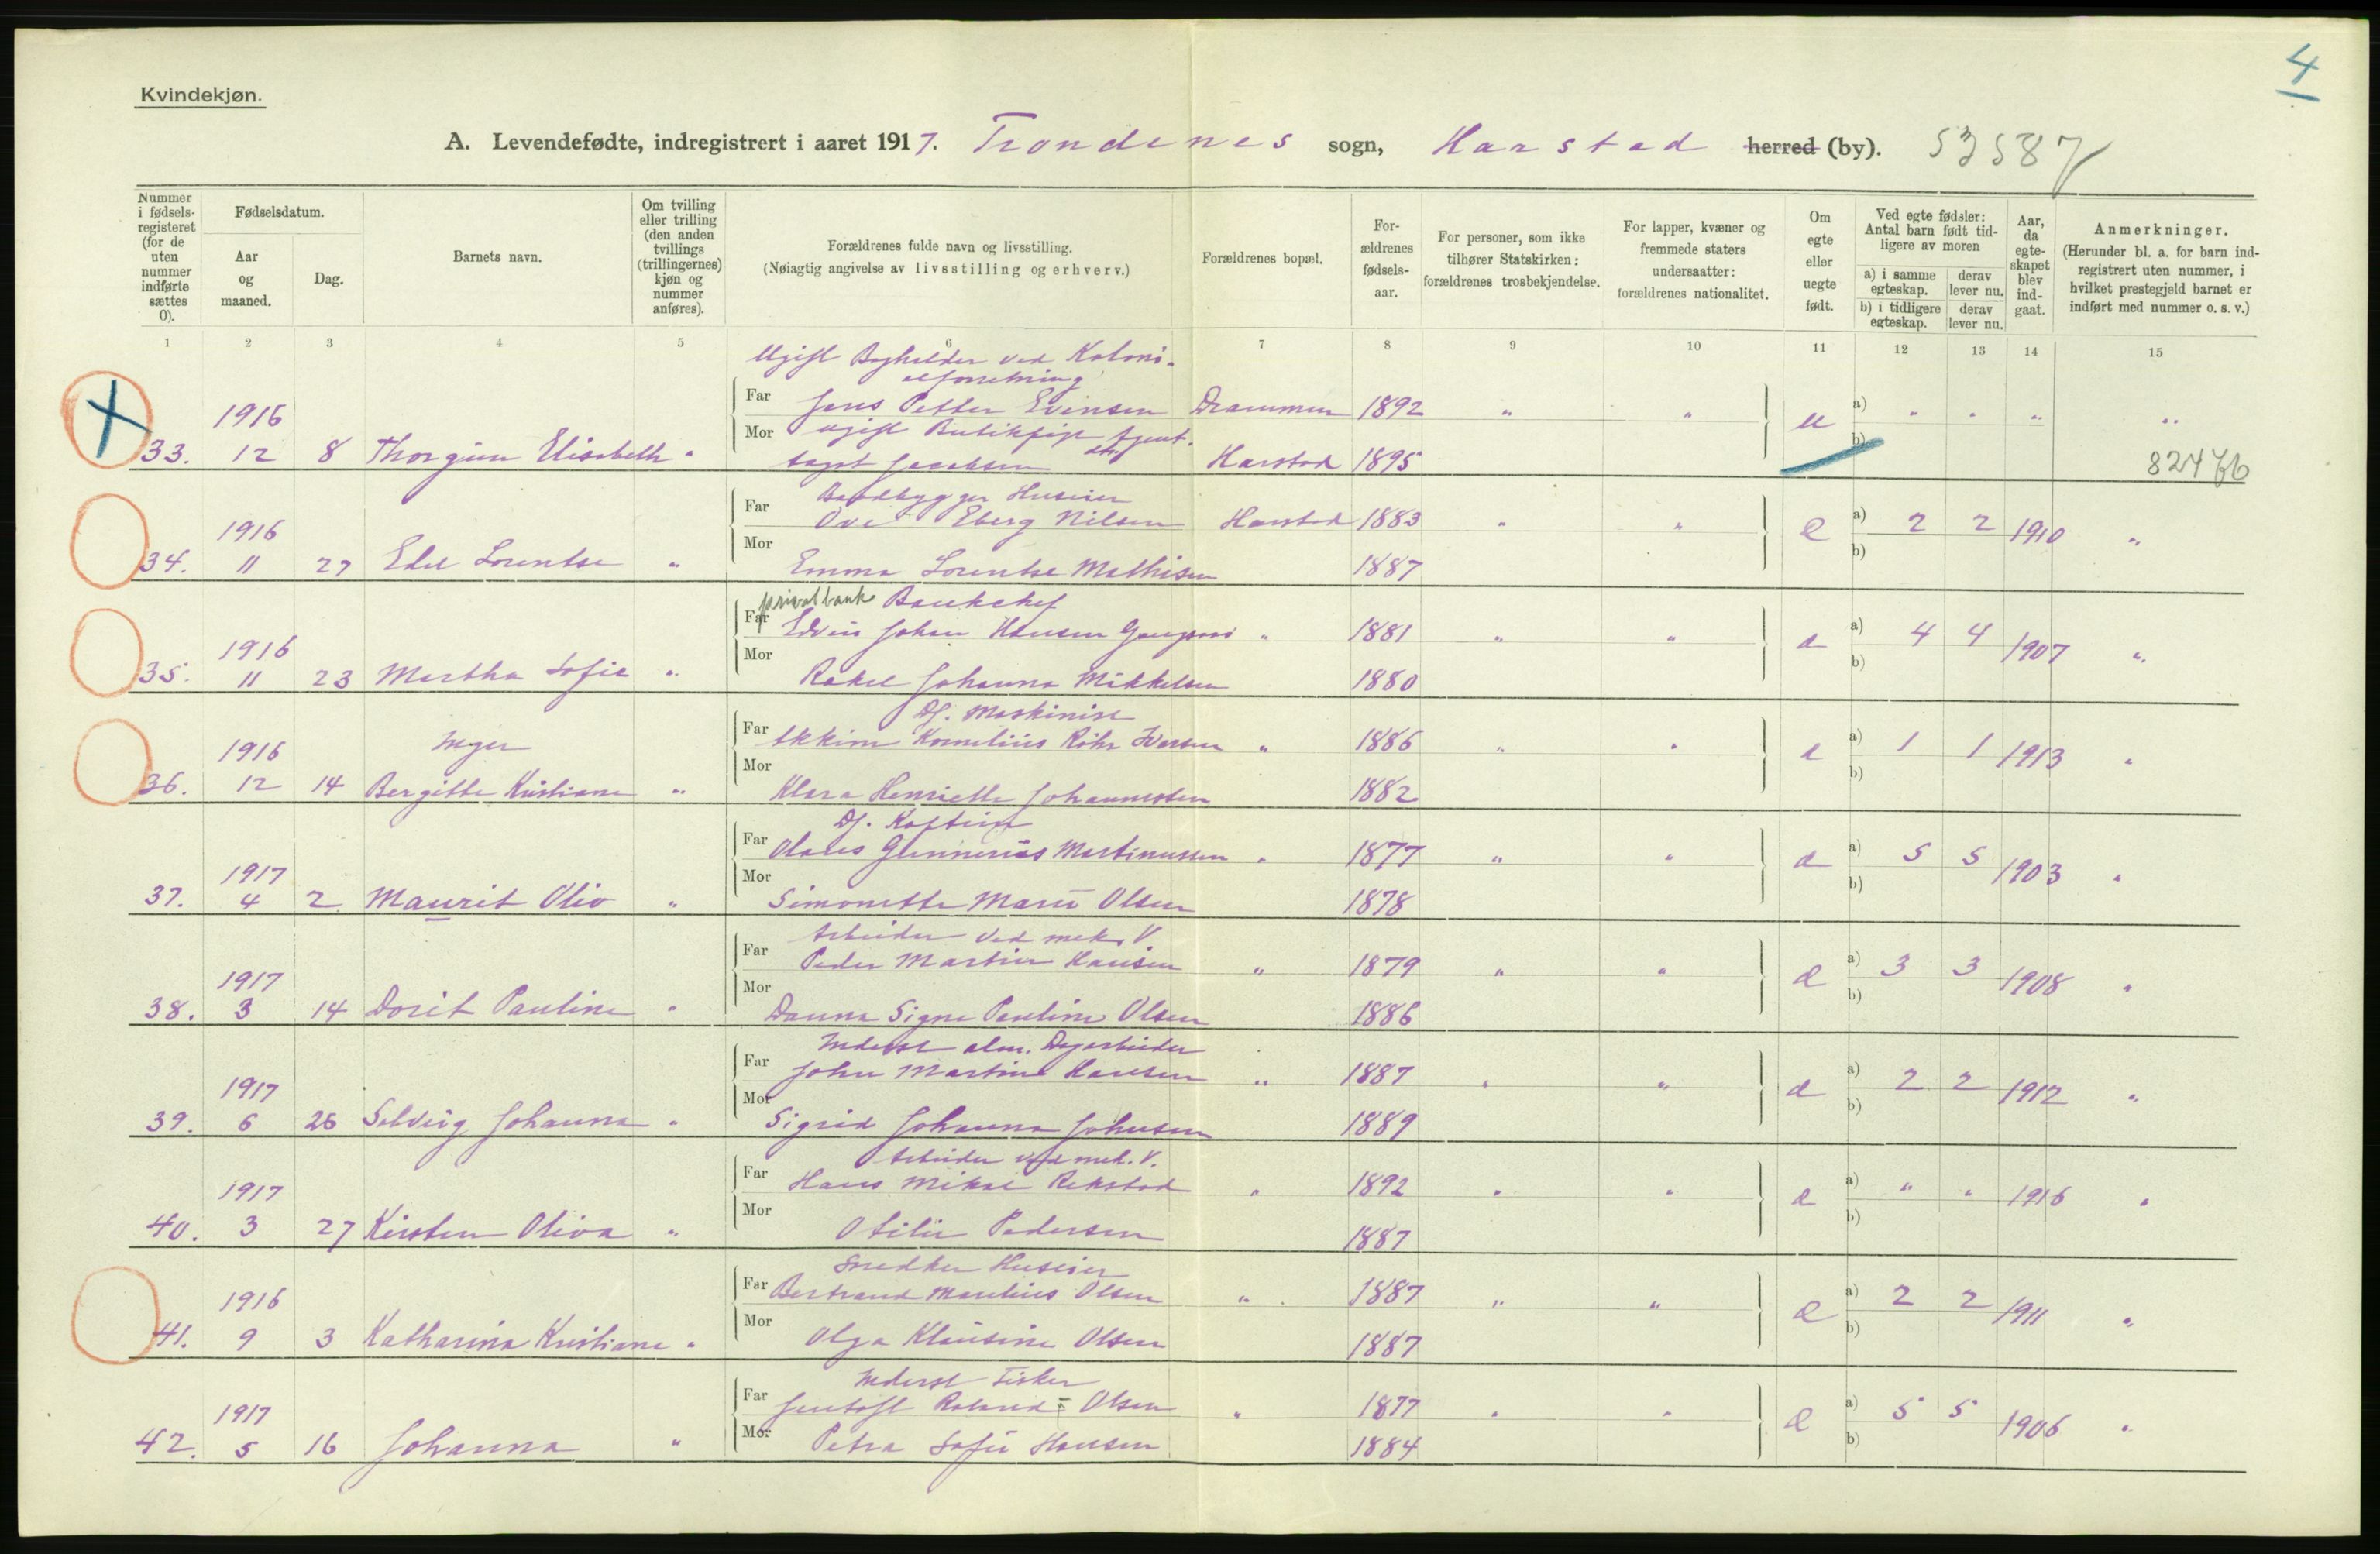 4
Kvindekjøn.
A. Levendefødte, indregistrert i aaret 1917. Trondenes sogn, Harstad herred (by). 53587
Nummer i fødsels-registeret (for de uten nummer indførte sættes 0).
Fødselsdatum.
Aar og maaned.
Dag.
Barnets navn.
Om tvilling eller trilling (den anden tvillings (trillingernes) kjøn og nummer anføres).
Forældrenes fulde navn og livsstilling.
(Nøiagtig angivelse av livsstilling og erhverv.)
Forældrenes bopæl.
For-ældrenes fødsels-aar.
For personer, som ikke tilhører Statskirken: forældrenes trosbekjendelse.
For lapper, kvæner og fremmede staters undersaatter: forældrenes nationalitet.
Om egte eller uegte født.
Ved egte fødsler: Antal barn født tid-ligere av moren
a) i samme egteskap.
derav lever nu.
b) i tidligere egteskap.
derav lever nu.
Aar, da egte-skapet blev ind-gaat.
Anmerkninger.
(Herunder bl. a. for barn ind-registrert uten nummer, i hvilket prestegjeld barnet er indført med nummer o. s. v.)
1 2 3 4 5 6 7 8 9 10 11 12 13 14 15
Ugift Bogholder ved Koloni-
alforretning
1916 Far Jens Petter Evensen Drammen 1892 " " u a) " " " "
Mor ugift Butikpige
33. 12 8 Thorgun Elisabeth " Jacobsen Harstad 1895 b) 82476
Baadbygger Huseier
1916 Far Ove Eberg Nilsen Harstad 1883 " " e a) 2 2 1910 "
Mor b)
34. 11 27 Edel Lorentse " Emma Lorentse Mathisen 1887
privatbank Bankchef
1916 Far Edvin Johan Hansen " 1881 " " e a) 4 4 1907 "
Mor b)
35. 11 23 Martha Sofie " Rakel Johanna Mikkelsen 1880
Df. Maskinist
1916 Inger Far Kornelius Røhr Iversen " 1886 " " e a) 1 1 1913 "
Mor b)
36. 12 14 Bergitte Kristiane " Klara Henriette Johannessen 1882
Df. Kaptein
1917 Far Olaus Gunnerius Martinussen " 1877 " " e a) 5 5 1903 "
Mor b)
37. 4 2 Maurit Oliv " Simonette Marie Olsen 1878
Arbeider ved mek. V
1917 Far Peder Martin Hansen " 1879 " " e a) 3 3 1908 "
Mor b)
38. 3 14 Dorit Pauline " Danna Signe Pauline Olsen 1886
Inderst alm. Dagarbeider
1917 Far John Martin Hansen " 1887 " " e a) 2 2 1912 "
Mor b)
39. 6 26 Solveig Johanna " Sigrid Johanna Johnsen 1889
Arbeider ved mek. V.
1917 Far Hans Mikal Rekstad " 1892 " " e a) " " 1916 "
Mor b)
40. 3 27 Kirsten Oliva " Otilie Pedersen 1887
Snedker Huseier
1916 Far Bertrand Marelius Olsen " 1887 " " e a) 2 2 1911 "
Mor b)
41. 9 3 Katharina Kristiane " Olga Klausine Olsen 1887
Inderst Fisker
1917 Far Jentoft Roland Olsen " 1877 " " e a) 5 5 1906 "
Mor b)
42. 5 16 Johanna " Petra Sofie Hansen 1884